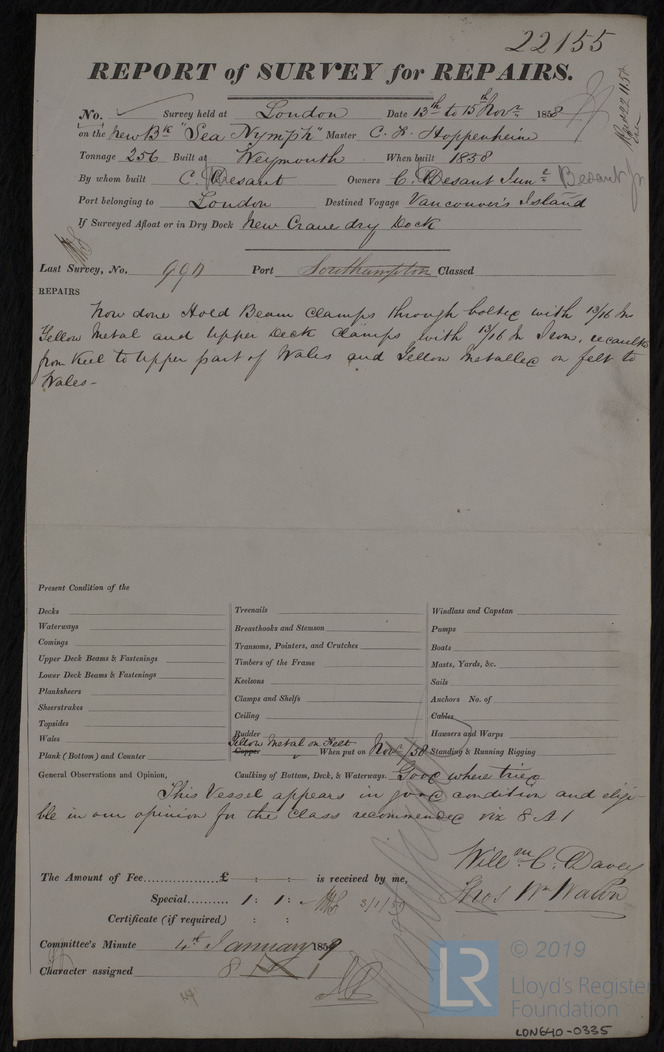 22155
REPORT of SURVEY for REPAIRS.
No. Survey held at London Date 13th to 15th Nov 1858
on the New Bk "Sea Nymph" Master C. H. Hoppenheim
Tonnage 256 Built at Weymouth When built 1858
By whom built C. Besant Owners C. Besant Junr Besant Jr
Port belonging to London Destined Voyage Vancouver's Island
If Surveyed Afloat or in Dry Dock New Crane dry Dock
Last Survey, No. 990 Port Southampton Classed
REPAIRS
Now done Hold Beam Clamps through bolted with 13/16 In
Yellow Metal and Upper Deck Clamps with 13/16 In Iron, recaulked
from Keel to Upper part of Wales and Yellow Metalled on felt to
Wales -
Present Condition of the
Decks
Waterways
Comings
Upper Deck Beams & Fastenings
Lower Deck Beams & Fastenings
Planksheers
Sheerstrakes
Topsides
Wales
Plank (Bottom) and Counter
Treenails
Breasthooks and Stemson
Transoms, Pointers, and Crutches
Timbers of the Frame
Keelsons
Clamps and Shelfs
Ceiling
Rudder
Yellow Metal on Felt
Copper When put on Nov /58
Windlass and Capstan
Pumps
Boats
Masts, Yards, &c.
Sails
Anchors No. of
Cables
Hawsers and Warps
Standing & Running Rigging
General Observations and Opinion, Caulking of Bottom, Deck, & Waterways. Good where tried
This Vessel appears in good condition and eligi-
ble in our opinion for the Class recommended viz 8 A 1
Willm C. Davey
The Amount of Fee £ : : is received by me,
Thos Wm Wawn
Special 1 : 1 : 3/1/59
Certificate (if required) : :
Committee's Minute 4th January 1859
Character assigned 8 A 1
LR
© 2019
Lloyd's Register
Foundation
LON640-0335